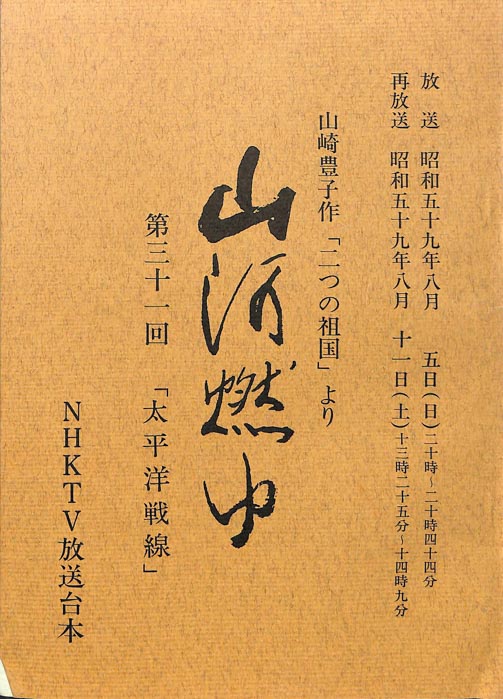 放送 昭和五十九年八月 五日(日)二十時~二十時四十四分
再放送 昭和五十九年八月 十一日(土)十三時二十五分~十四時九分
山崎豊子作「二つの祖国」より
山河燃ゆ
第三十一回 「太平洋戦線」
NHKTV放送台本